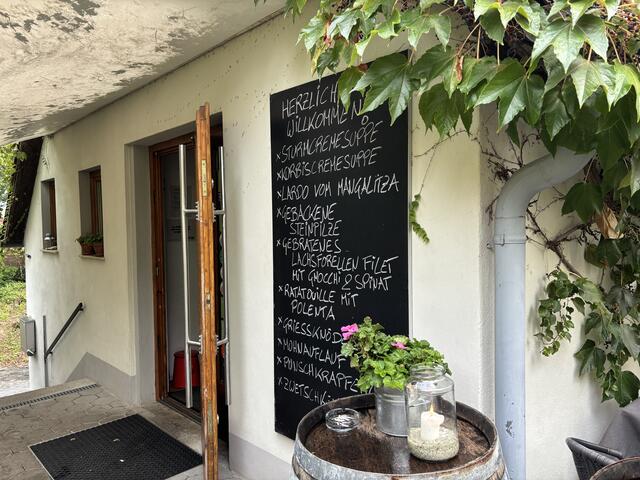 HERZLICH
WILLKOMMEN
x STURMCREMESUPPE
x KÜRBISCREMESUPPE
x LARDO VOM MANGALITZA
x GEBACKENE
STEINPILZE
x GEBRATENES
LACHSFORELLEN FILET
MIT GNOCCHI & SPINAT
x RATATOUILLE MIT
POLENTA
x MOHNAUFLAUF
x PUNSCHKRAPFE